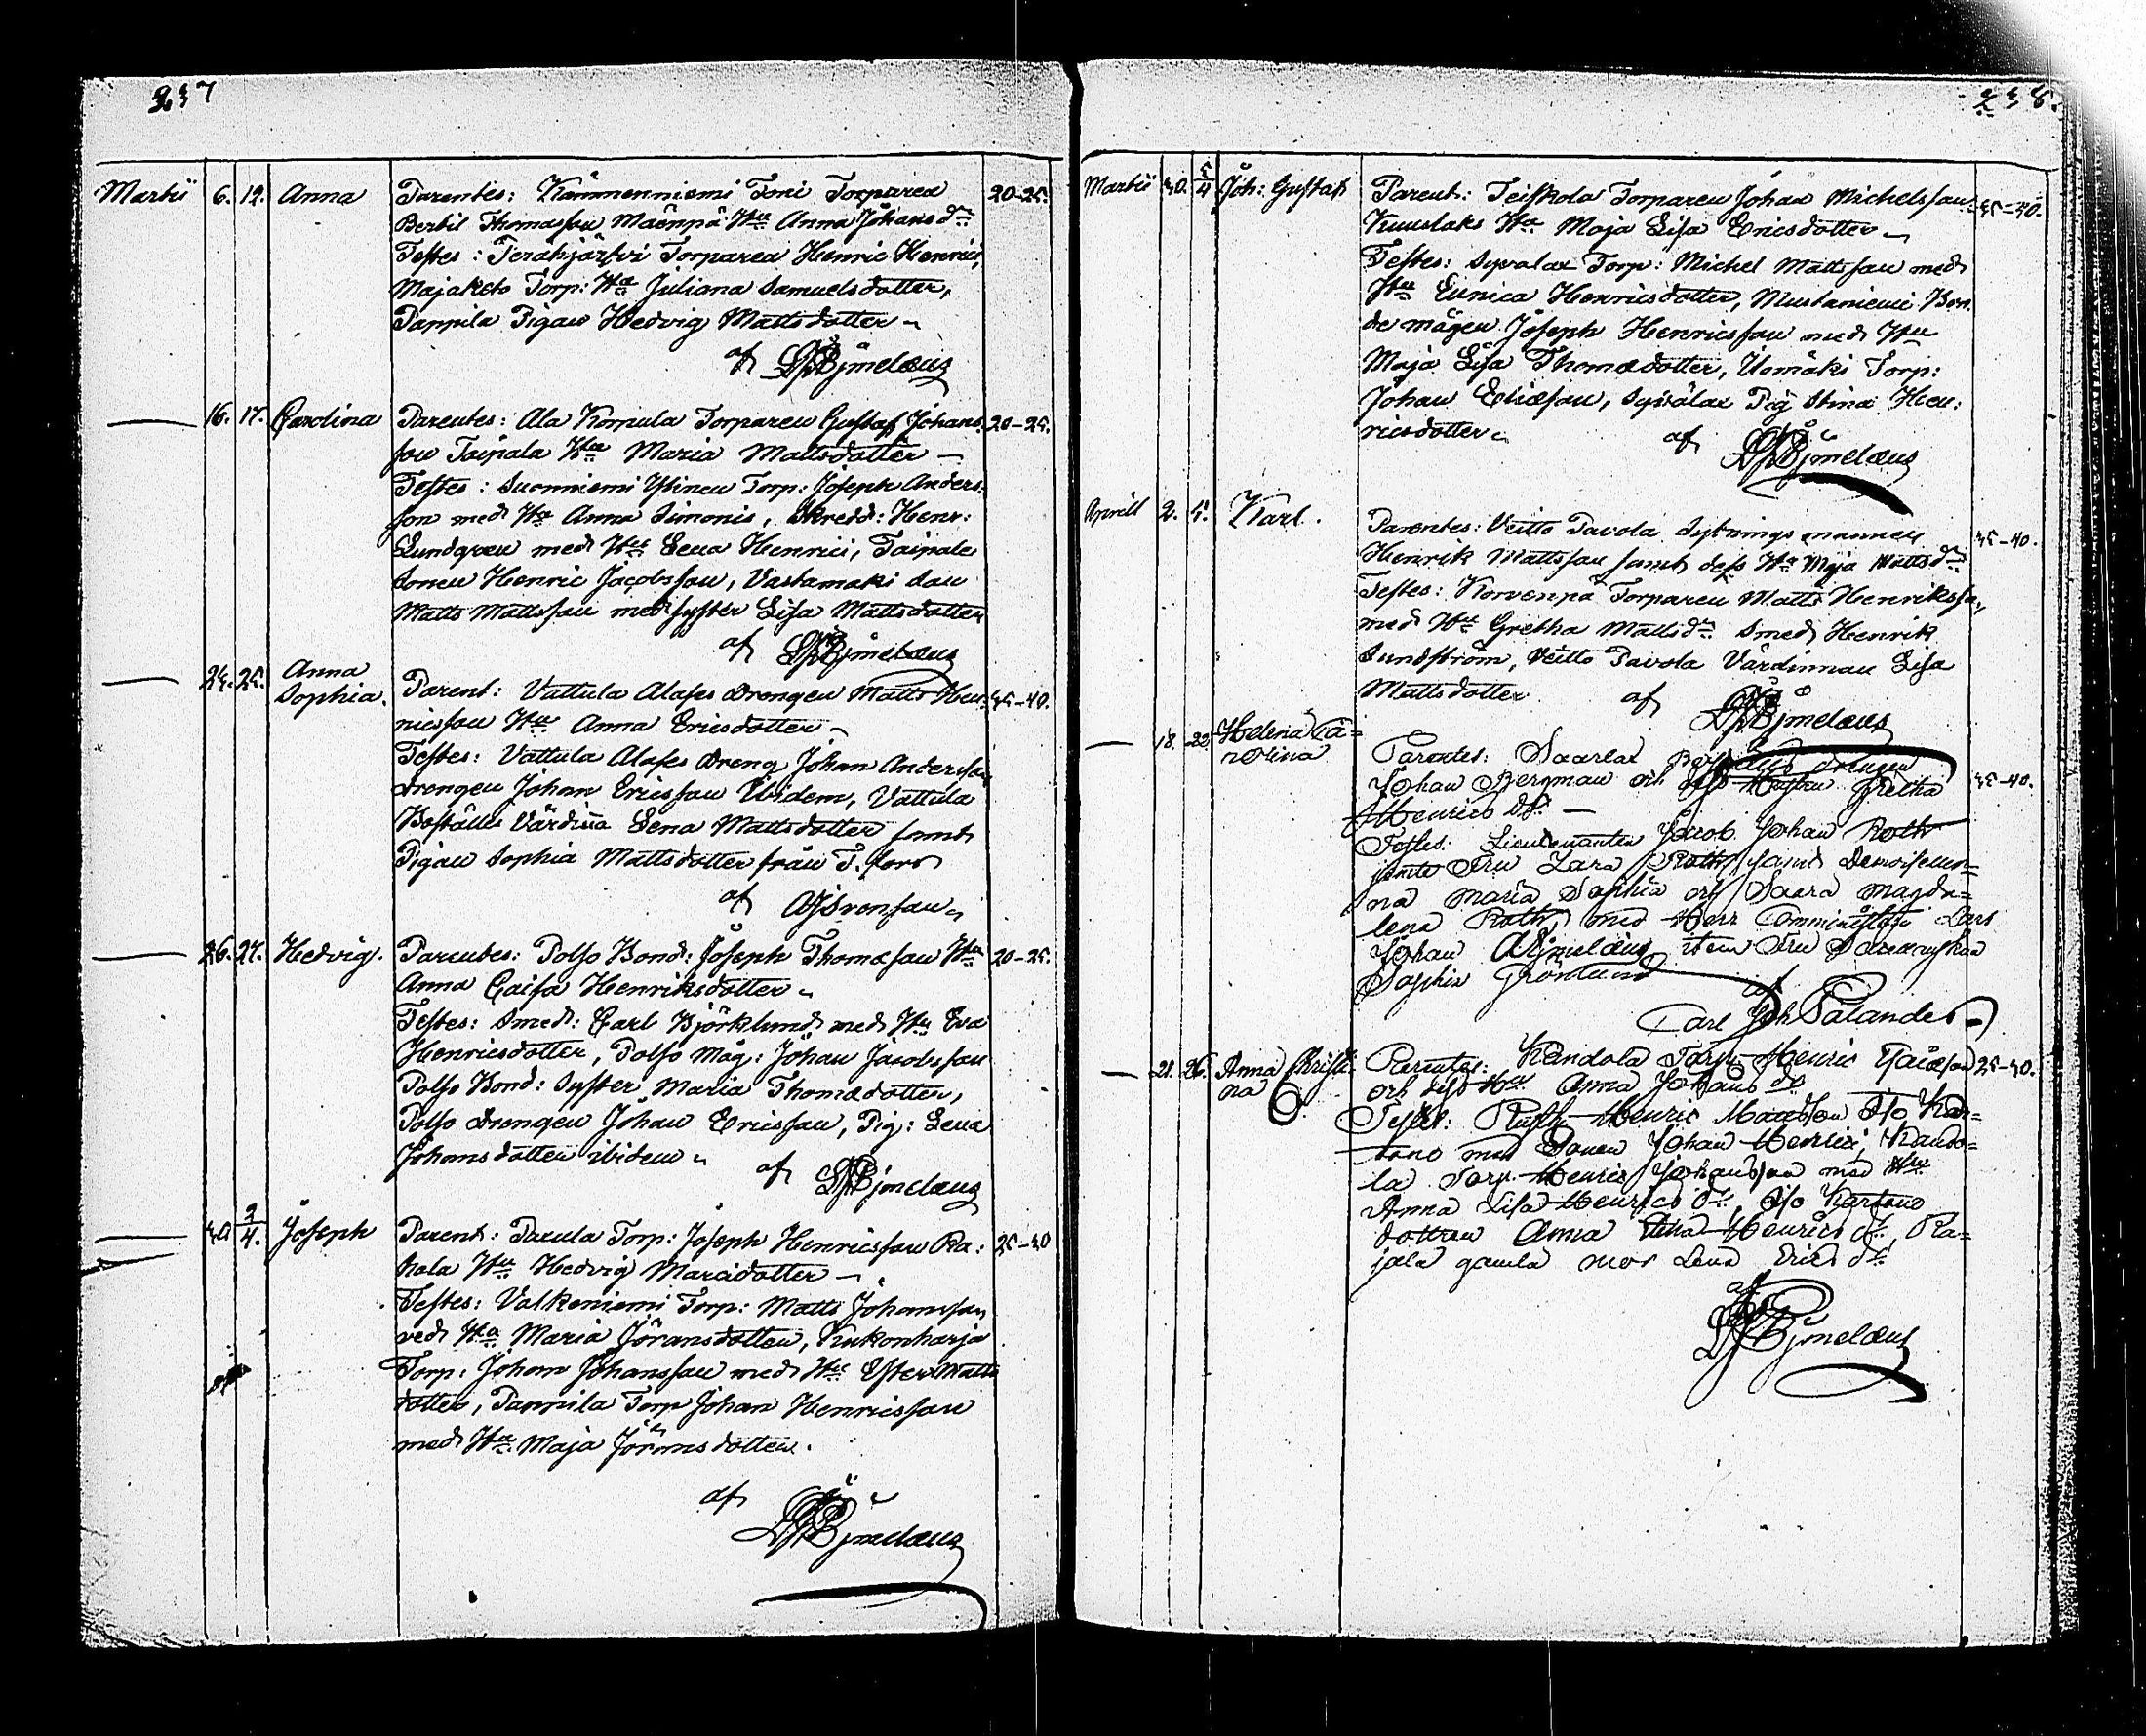 237
Martii 6. 12. Anna Parentes: Kämmenniemi Toni Torparen 20-25.
Bertil Thomasson Mäenpä Hu Anna Johansdr
Testes: Teräkjärfvi Torparen Henric Henrici,
Majaketo Torp: Hu Juliana Samuelsdotter,
Pappila Pigan Hedvig Mattsdotter
af LJBjmelæus
16. 17. Carolina Parentes: Ala Korpula Torparen Gustaf Johans- 20-25.
son Taipala Hu Maria Mattsdotter
Testes: Suonniemi Torp: Joseph Anders-
son med Hu Anna Simonis, Skredd: Henr:
Lundgren med Hu Lena Henrici, Taipale
Sonen Henric Jacobsson, Vastamaki Son
Matts Mattsson med syster Lisa Mattsdotter
af LJBjmelæus
24. 25. Anna
Sophia. Parent: Vattula Alafes Drengen Matts Hen- 35-40.
ricsson Hu Anna Ericsdotter
Testes: Vattula Alafes Dreng Johan Andersson
Drengen Johan Ericsson Ibidem, Vattula
Boställs Värdina Lena Mattsdotter samt
Pigan Sophia Mattsdotter från T. fors
af AJSvensson
26. 27. Hedvig. Parentes: Polso Bond: Joseph Thomæson Hu 20-25.
Anna Caisa Henriksdotter
Testes: Smed: Carl Björklund med Hu Eva
Henricsdotter, Polso Måg: Johan Jacobsson
Polso Bond: Syster Maria Thomædotter,
Polso Drengen Johan Ericsson, Pig: Lena
Johansdotter ibidem
af LJBjmelæus
30 2/4. Joseph Parent: Pacula Torp: Joseph Henricsson Ra: 25-30
hola Hu Hedvig Marcidotter
Testes: Valkeniemi Torp: Matts Johansson
med Hu Maria Jöransdotter, Kukonharja
Torp: Johan Johansson med Hu Ester Matts
dotter, Pappila Torp Johan Henricsson
med Hu Maja Jöransdotter.
af
LJBjmelæus
238.
Martii 30. 5/4 Joh: Gustaf Parent: Teiskola Torparen Johan Michelsson 35-40.
Kuuslaks Hu Maja Lisa Ericsdotter
Testes: Syvalax Torp: Michel Mattsson med
Hu Eunica Henricsdotter, Mustaniemi Bon-
de mågen Joseph Henricsson med Hu
Maja Lisa Thomædotter, Uomäki Torp:
Johan Eliæson, Syvälax Pig Stina Hen:
ricsdotter
af LJBjmelæus
Aprill 2. 5. Karl. Parentes: Veitto Pavola Sytningsmannen 35-40.
Henrik Mattsson samt dess Hu Maja Mattsdr
Testes: Korvenpä Torparen Matts Henriksson,
med Hu Gretha Mattsdr Smed Henrik
Sundström, Veitto Pavola Värdinnan Lisa
Mattsdotter af LJBjmelæus
18. 22. Helena Ca=
rolina Parentes: Saarlax drengen
Johan Bergman och dess Hustru Gretha 35-40.
Henrics dr
Testes: Lieutenanten Jacob Johan Roth
jemte Fru Zara Roth, samt Demoisellor=
na Maria Sophia och Saara Magda=
lena Roth, med Herr Comministern Lars
Johan Bjmelæus item Fru
Sophia Grönlund
af
Carl Joh Palander
21. 26. Anna Christi
na Parentes: Kandola Torp. Henric 25-30.
och dess Hu Anna Johans dr
Testes: Rusth. Henric Iso Kar=
tano med Sonen Johan Henrici, Kando=
la Torp. Henric Johansson med Hu
Anna Lisa Henrics dr, Iso Kartano
dottren Anna Lena Henrics dr, Ra=
jala gamla mor Lena Erics dr
af
LJBjmelæus